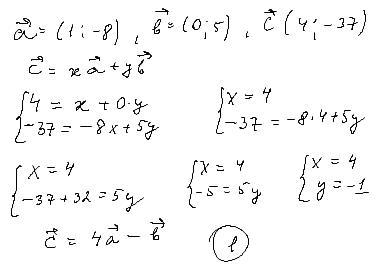 a⃗ = (1; -8), b⃗ = (0; 5), c⃗ (4; -37)
c⃗ = xa⃗ + yb⃗
{ 4 = x + 0·y
-37 = -8x + 5y
{ x = 4
-37 = -8·4 + 5y
{ x = 4
-37 + 32 = 5y
{ x = 4
-5 = 5y
{ x = 4
y = -1
c⃗ = 4a⃗ - b⃗